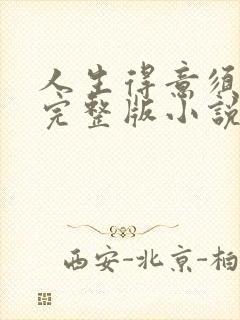 人生得意须
完整版小説
西安-北京-柏